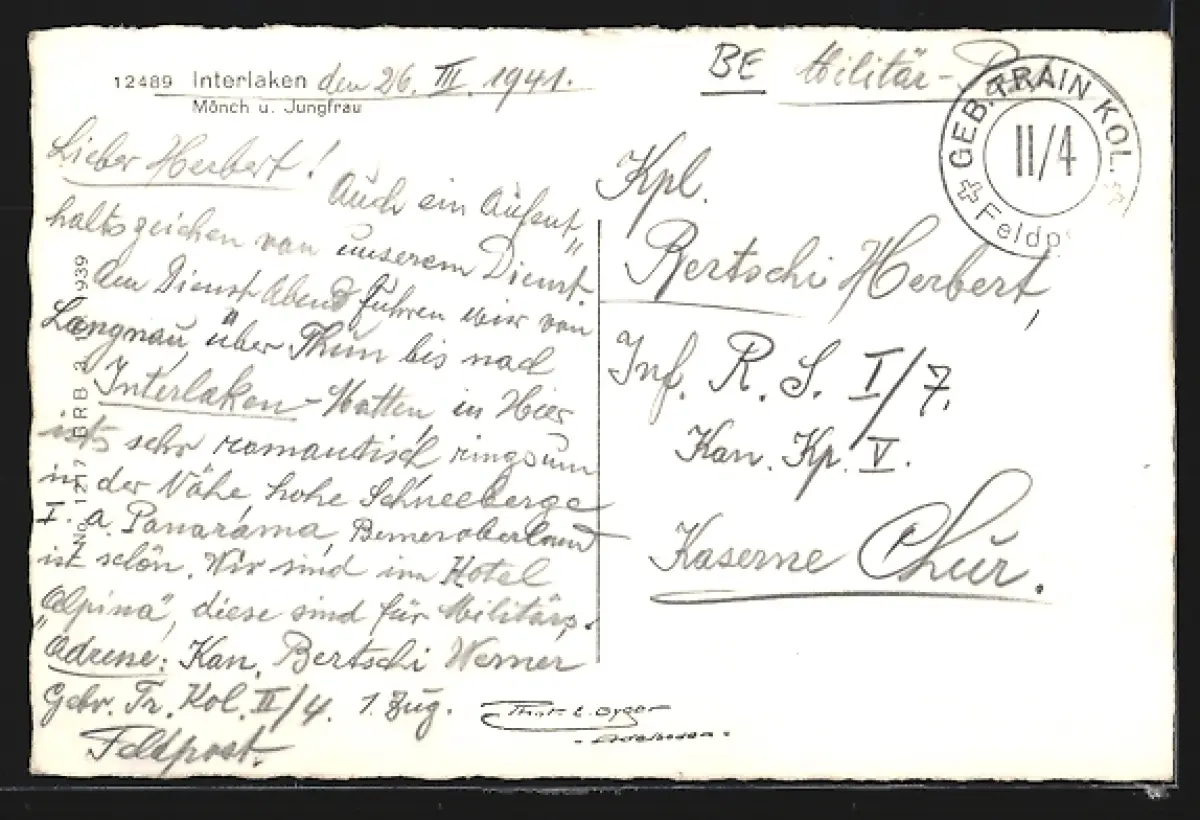 12489 Interlaken den 26. III. 1941.
Mönch u. Jungfrau
Lieber Herbert!
Auch ein Aufent„
haltszeichen von unserem Dienst.
Am Dienst Abend fuhren wir von
Langnau, über Thun bis nach
Interlaken-Matten, in Hier
ists sehr romantisch, ringsum
in der Nähe hohe Schneeberge
I. a. Panarama, Berneroberland
ist schön. Wir sind im Hotel
„Alpina", diese sind für Militärs.
Adrene: Kan. Bertschi Werner
Gebr. Tr. Kol. II/4. 1. Zug.
Feldpost.
No. 1217 BRB 3. 1939
Phot. E. Gyger
- Adelboden -
BE Militär-
GEB. TRAIN KOL.
II/4
Feldp
Kpl.
Bertschi Herbert,
Inf. R. S. I/7.
Kan. Kp. V.
Kaserne Chur.